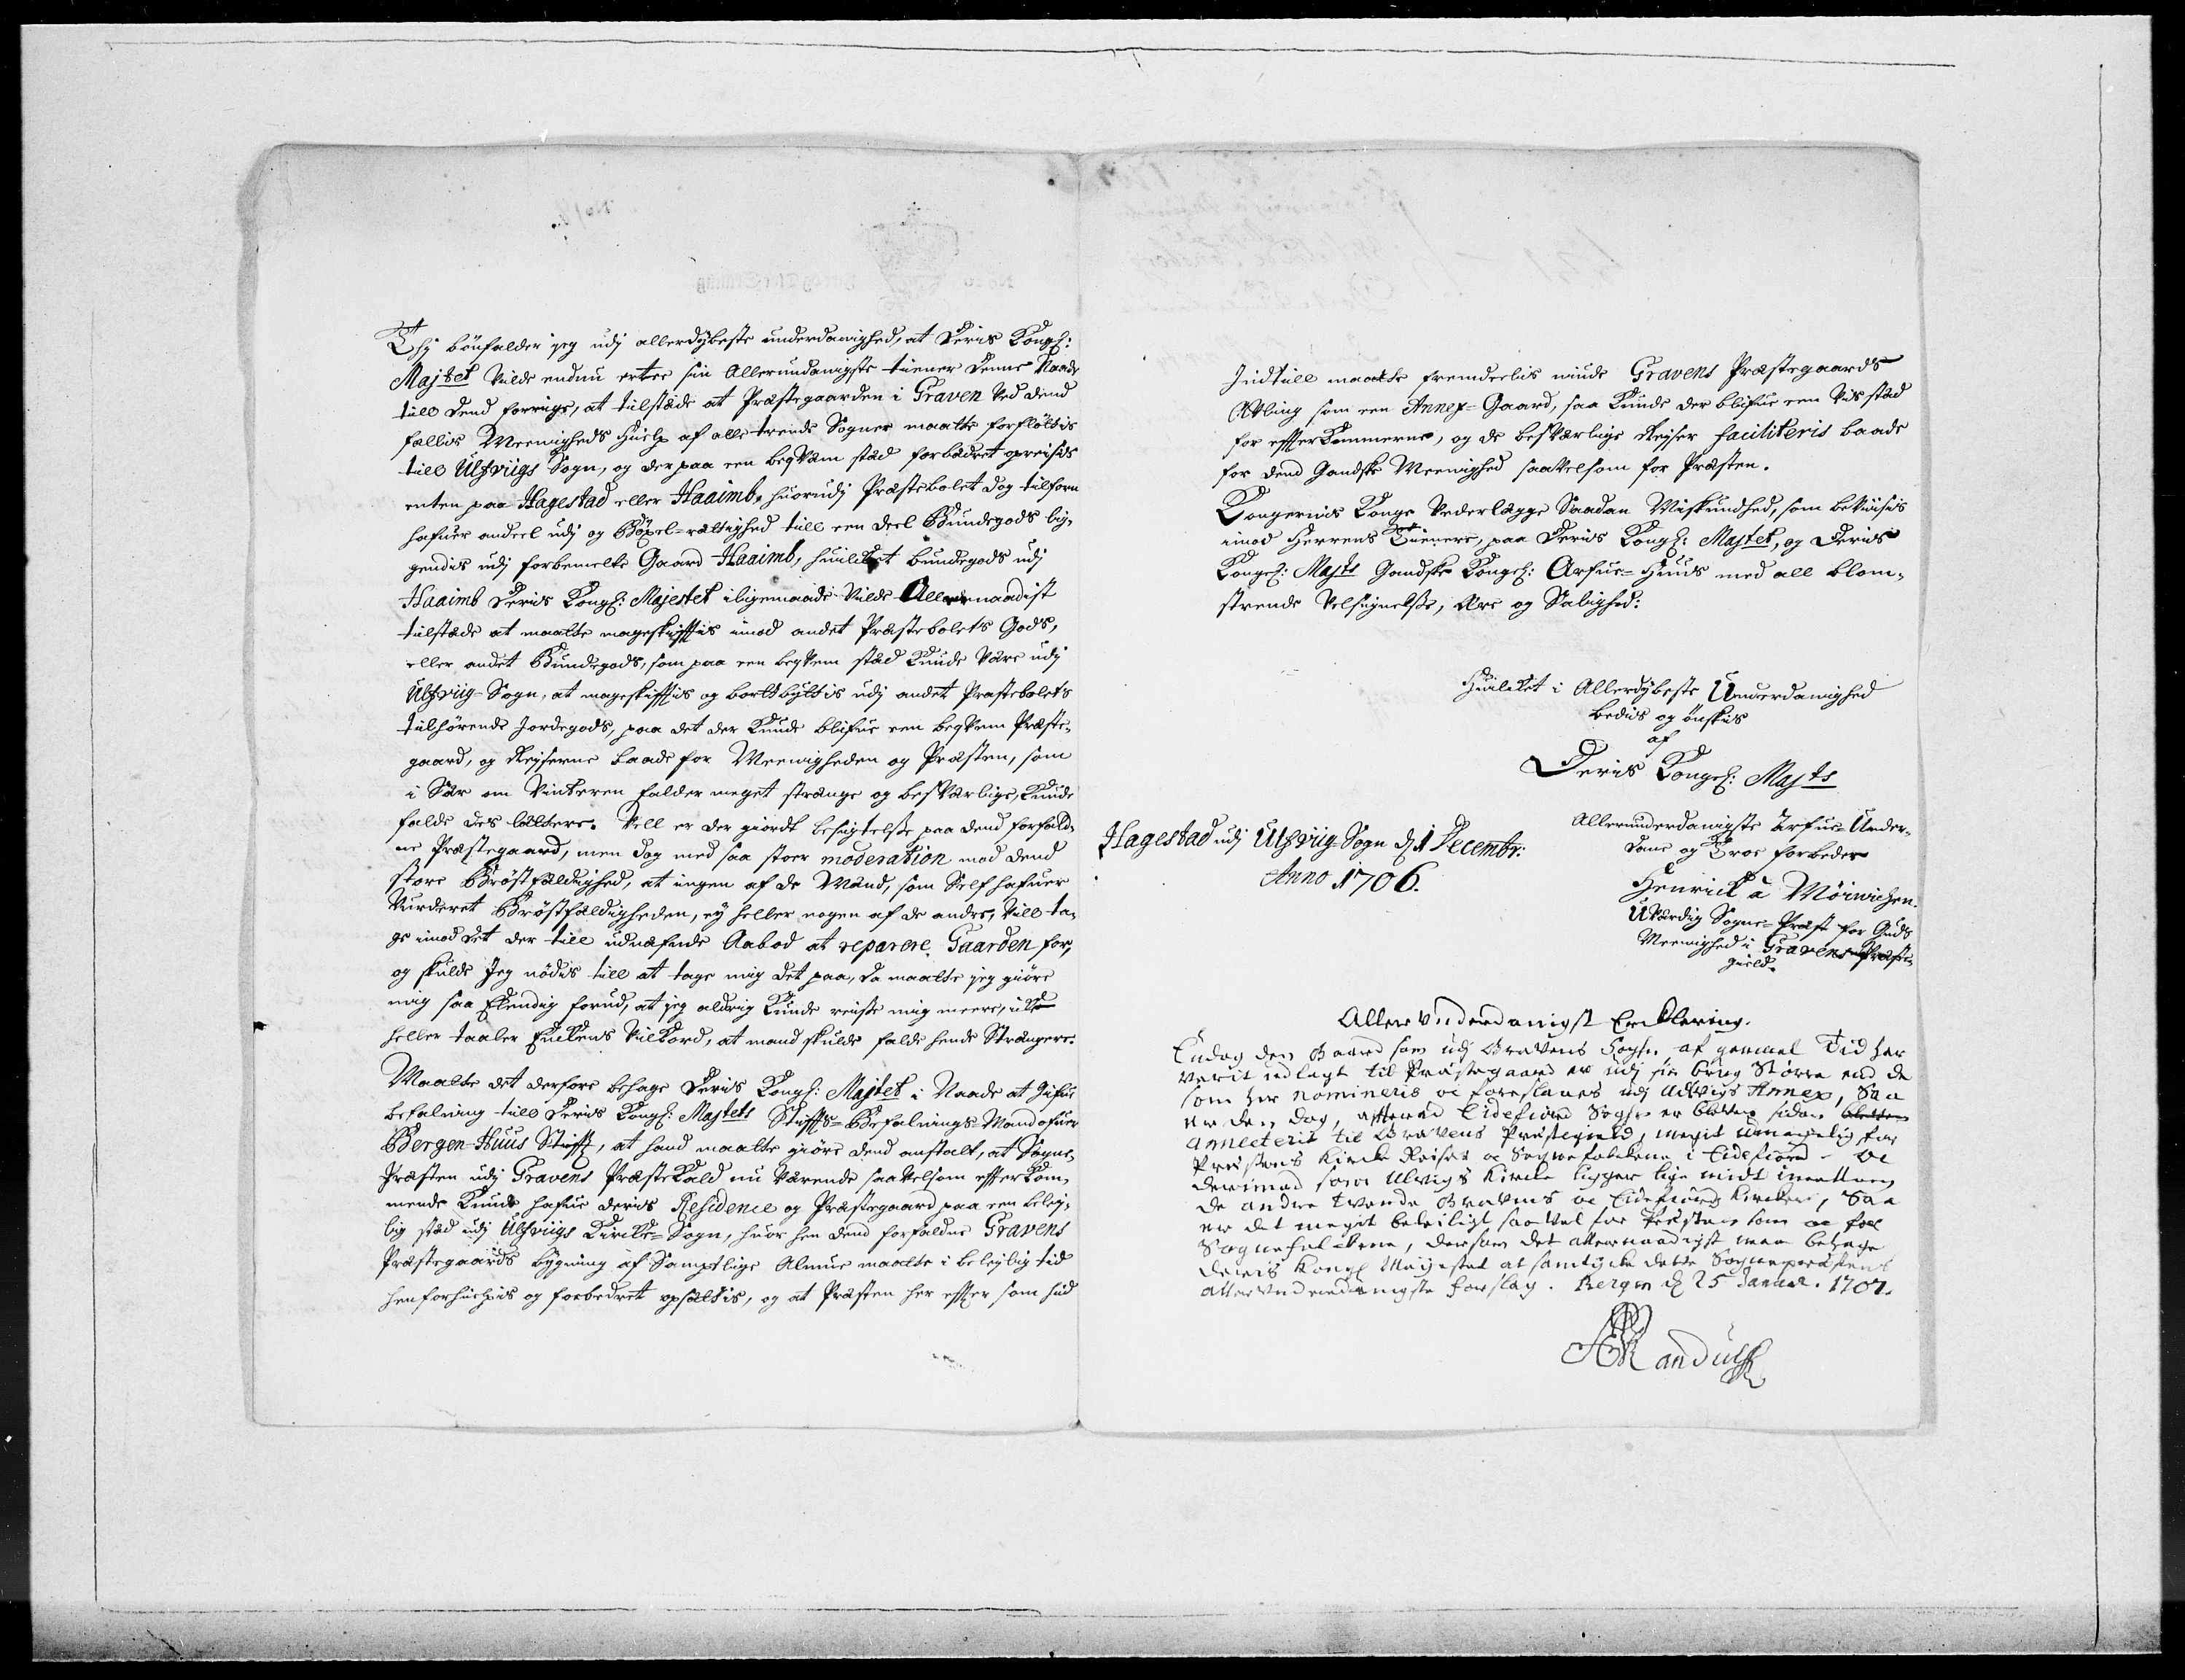 Thj bönfalder jeg udj allerdybeste underdanighed, at Deris Kongl:
Majtet Vilde endnu ertee sin Allerundanigste tiener denne Naade
till dend forrige, at tilstæde at Præstegaarden i Graven Ved dend
fællis Meenigheds Hielp af alle trende Sogner maatte forfløttis
till Ulfviigs Sogn, og der paa een beqvem stæd forbedret opreisis
enten paa Hagestad eller Haaimb, huorudj Præstebolet dog tilforn
hafuer andeel udj og Böxel-rættighed till een deel Bundegods lig-
gendis udj forbemelte Gaard Haaimb, huilcket bundegods udj
Haaimb Deris Kongl: Majestet i ligemaade Vilde Allernaadist
tilstæde at maatte mageskifftis imod andet Præstebolets Gods,
eller andet Bundegods, som paa een beqvem stæd Kunde Være udj
Ulfviig-Sogn, at mageskifftis og bortbyttis udj andet Præstebolets
tilhørende Jordegods, paa det der Kunde blifue een beqvem Præste-
gaard, og Reyserne baade for Meenigheden og Præsten, som
i Sær om Vinteren falder meget strænge og besværlige, Kunde
falde des lættere. Vell er der giordt besigtelsse paa dend forfald-
ne Præstegaard, men dog med saa stoer moderation mod dend
store Bröstfældighed, at ingen af de Mænd, som Self hafuer
Vurderet Bröstfældigheden, ej heller nogen af de andre, Vill ta-
ge imod det der till udnæfnde Aabod at reparere Gaarden for,
og skulde Jeg nödis till at tage mig det paa, da maatte jeg giöre
mig saa Elendig forud, at jeg aldrig Kunde reisse mig meere, icke
heller taaler Enckens Vilckord, at mand skulde falde hende Strængere.
Maatte det derfore behage Deris Kongl: Majtet i Naade at Gifue
befalning till Deris Kongl: Majtets Stiffts-Befalnings-Mand ofuer
Bergen-Huus Stifft, at hand maatte giöre dend anstalt, at Sogne-
Præsten udj Gravens Præstekald nu Værende saavelsom effterkom-
mende Kunde hafue deris Residence og Præstegaard paa een beley-
lig stæd udj Ulfviigs Kircke-Sogn, huor hen dend forfaldne Gravens
Præstegaards bygning af Samptlige Almue maatte i beleylig tid
henforhielpis og forbedret opsættis, og at Præsten her effter som hid
Indtill maatte fremdeelis niude Gravens Præstegaards
Afling som een Annex-Gaard, saa Kunde der blifue een Vis stæd
for effterkommerne, og de besværlige Reyser faciliteris baade
for dend Gandske Meenighed saavelsom for Præsten.
Kongernis Konge Vederlægge Saadan Miskundhed, som beviisis
imod Herrens Tienere, paa Deris Kongl: Majtet, og Deris
Kongel: Majts Gandske Kongel: Arfue-Huus med all blom-
strende Velsignelsse, Ære og Salighed:
Huilcket i Allerdybeste Underdanighed
bedis og önskis
af
Deris Kongel: Majts
Allerunderdanigste Arfue-Under-
dane og Troe forbeder
Hagestad udj Ulfviig-Sogn d. 1 Decembr:
Anno 1706.
Henrick a Møinichen.
Uværdig Sogne-Præst for Guds
Meenighed i Gravens Præste-
gield.
Aller Vnderdanigst Erklering.
Endog den Gaard som udj Gravens Sogn, af gammel Tid har
verit udlagt til Præstegaard er udj sin brug Større end de
som her nomineris oc foreslaaes udj Ulvigs Annex, Saa
er den dog, efftersom Eidefiord Sogn er bleven siden
annecterit til Gravens Præstegield, megit umagelig for
Præstens Kircke Reiser oc Sognefolckene i Eidefiord - Oc
derimod som Ulvigs Kircke ligger lige midt imellem
de andre tvende Gravens oc Eidefiords Kircker, Saa
er det megit beleiligt saavel for Præsten som oc for
Sognefolckene, dersom det allernaadigst maa behage
Deris Kongl Majestet at samtycke dette Sognepræstens
allerunderdanigste forslag. Bergen d. 25 Januar. 1707.
Randulff